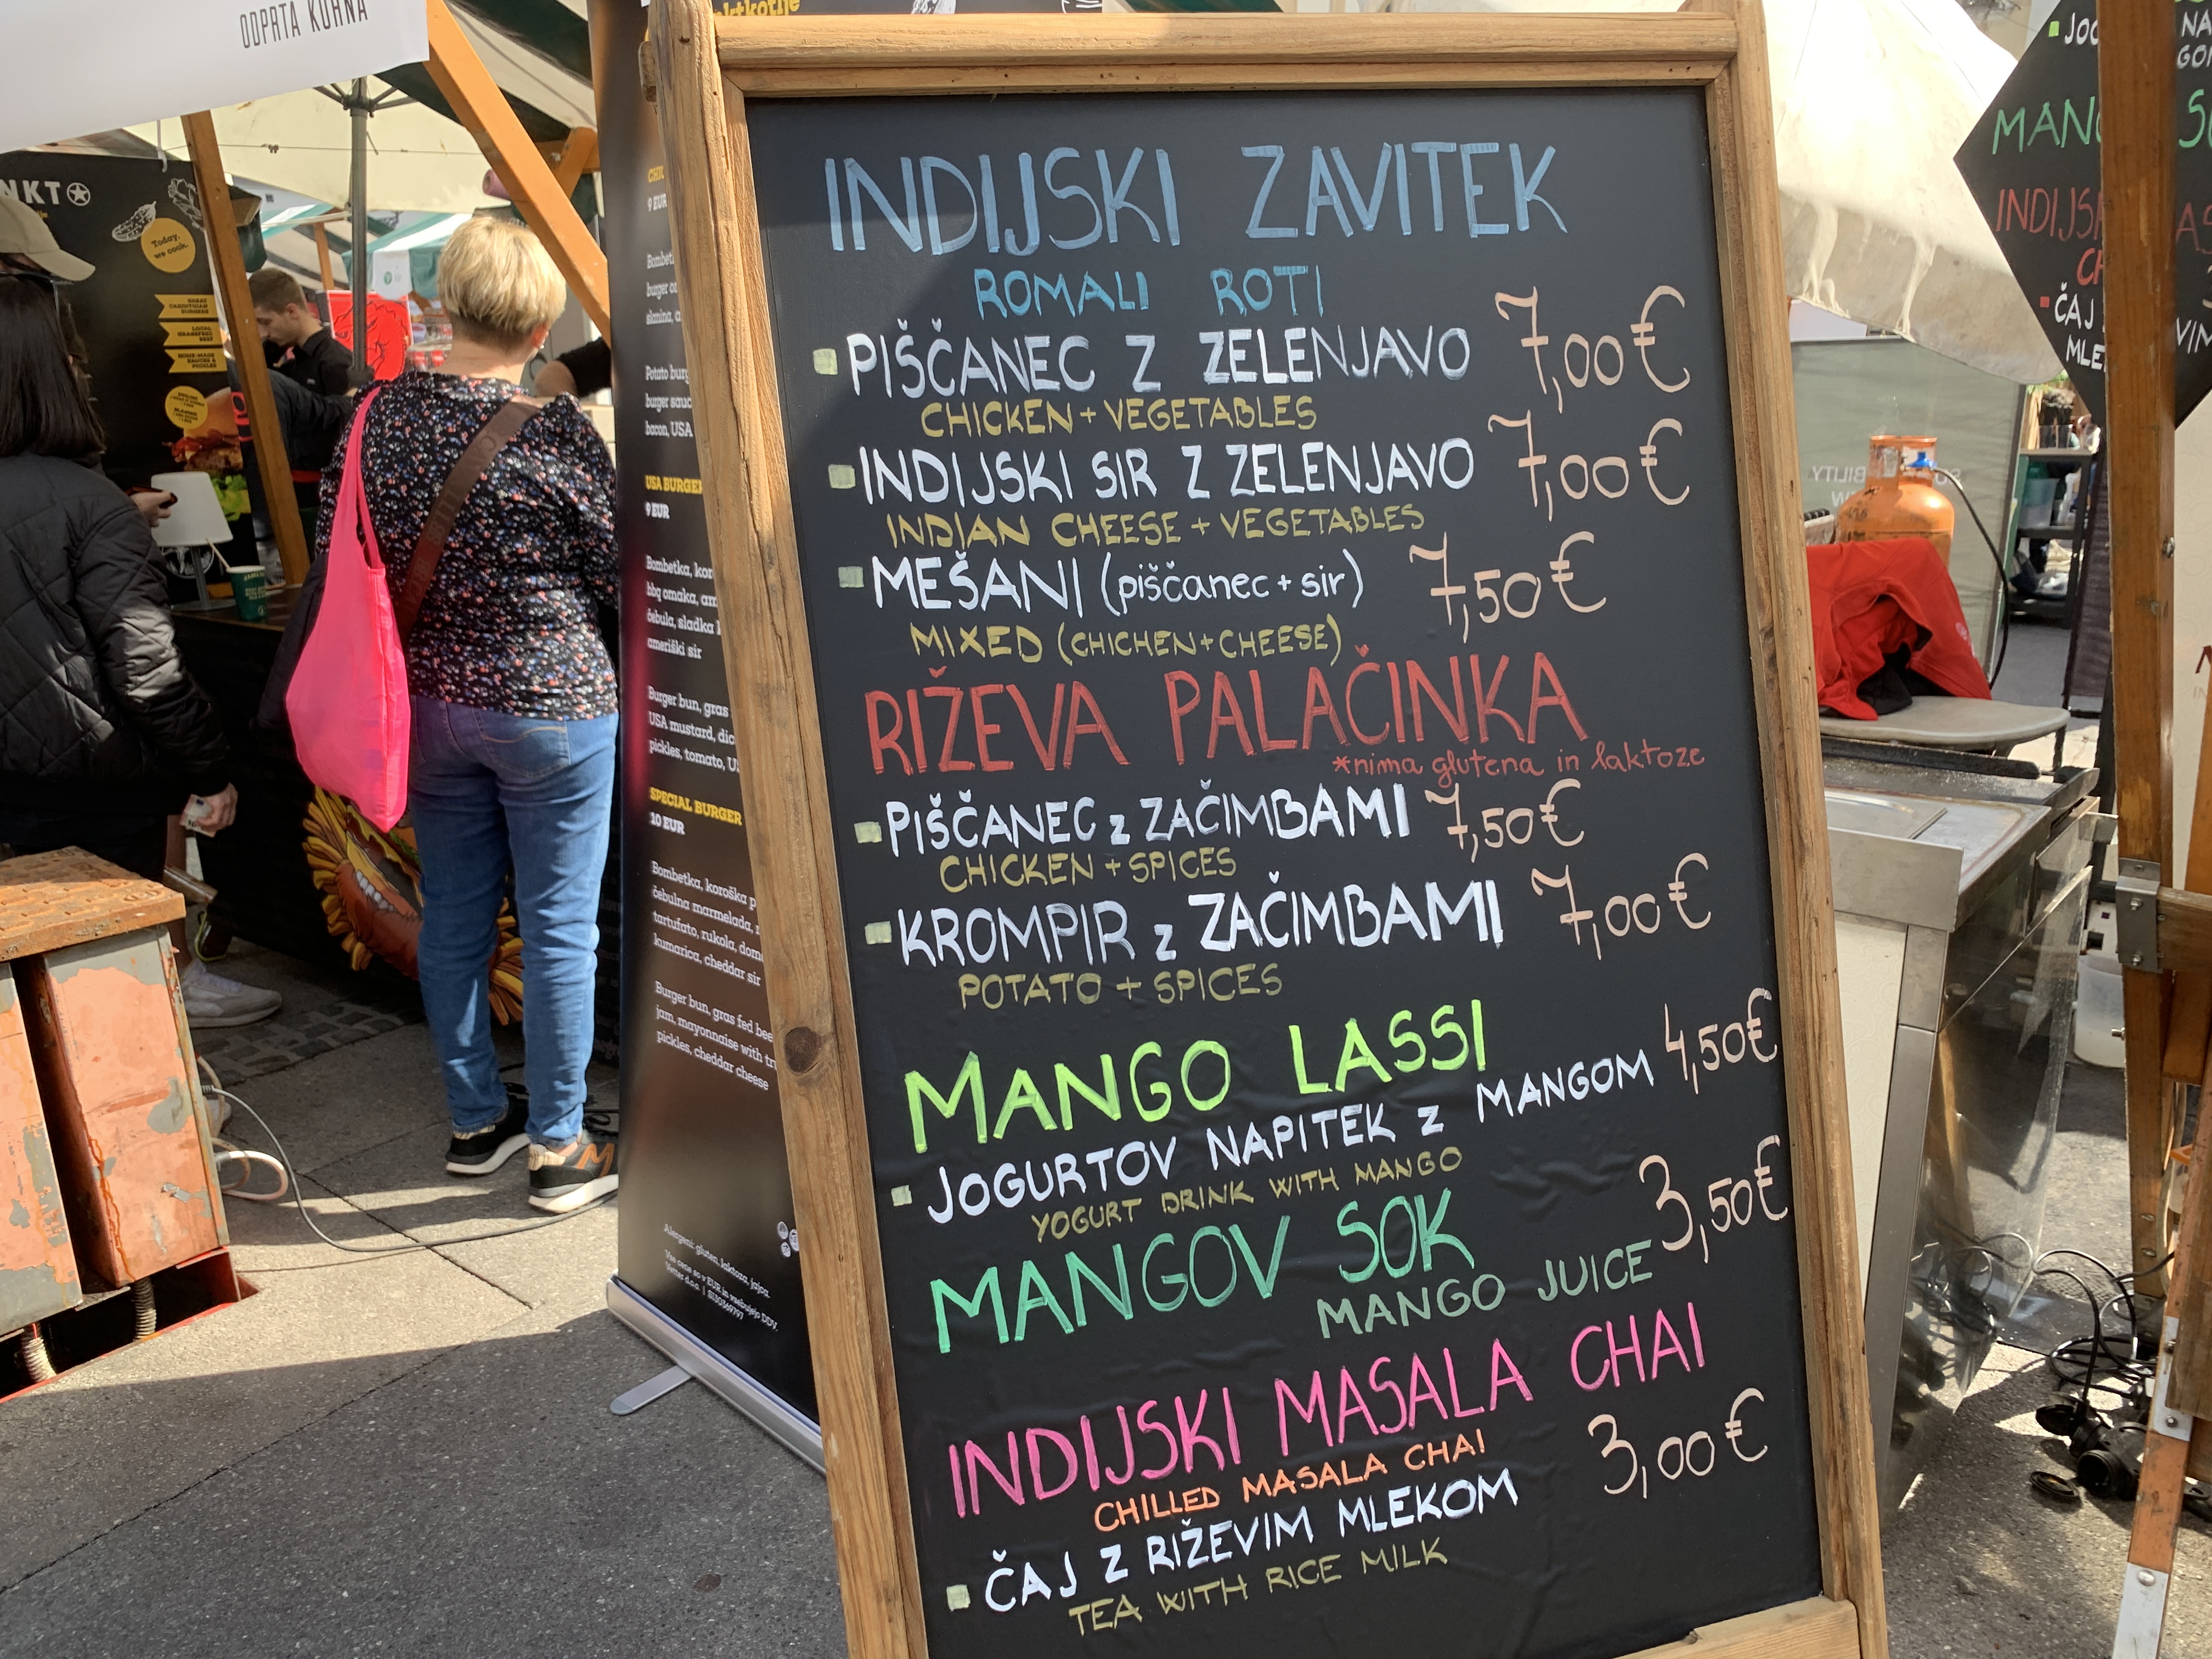 ODPRTA KUHNA
Today,
we cook.
9 EUR
USA BURGER
9 EUR
ameriški sir
SPECIAL BURGER
10 EUR
pickles, cheddar cheese
INDIJSKI ZAVITEK
ROMALI ROTI
PIŠČANEC Z ZELENJAVO 7,00€
CHICKEN + VEGETABLES
INDIJSKI SIR Z ZELENJAVO 7,00€
INDIAN CHEESE + VEGETABLES
MEŠANI (piščanec + sir) 7,50€
MIXED (CHICHEN+CHEESE)
RIŽEVA PALAČINKA
*nima glutena in laktoze
PIŠČANEC z ZAČIMBAMI 7,50€
CHICKEN + SPICES
KROMPIR z ZAČIMBAMI 7,00€
POTATO + SPICES
MANGO LASSI
JOGURTOV NAPITEK z MANGOM 4,50€
YOGURT DRINK WITH MANGO
MANGOV SOK 3,50€
MANGO JUICE
INDIJSKI MASALA CHAI
CHILLED MASALA CHAI 3,00€
ČAJ Z RIŽEVIM MLEKOM
TEA WITH RICE MILK
ČAJ